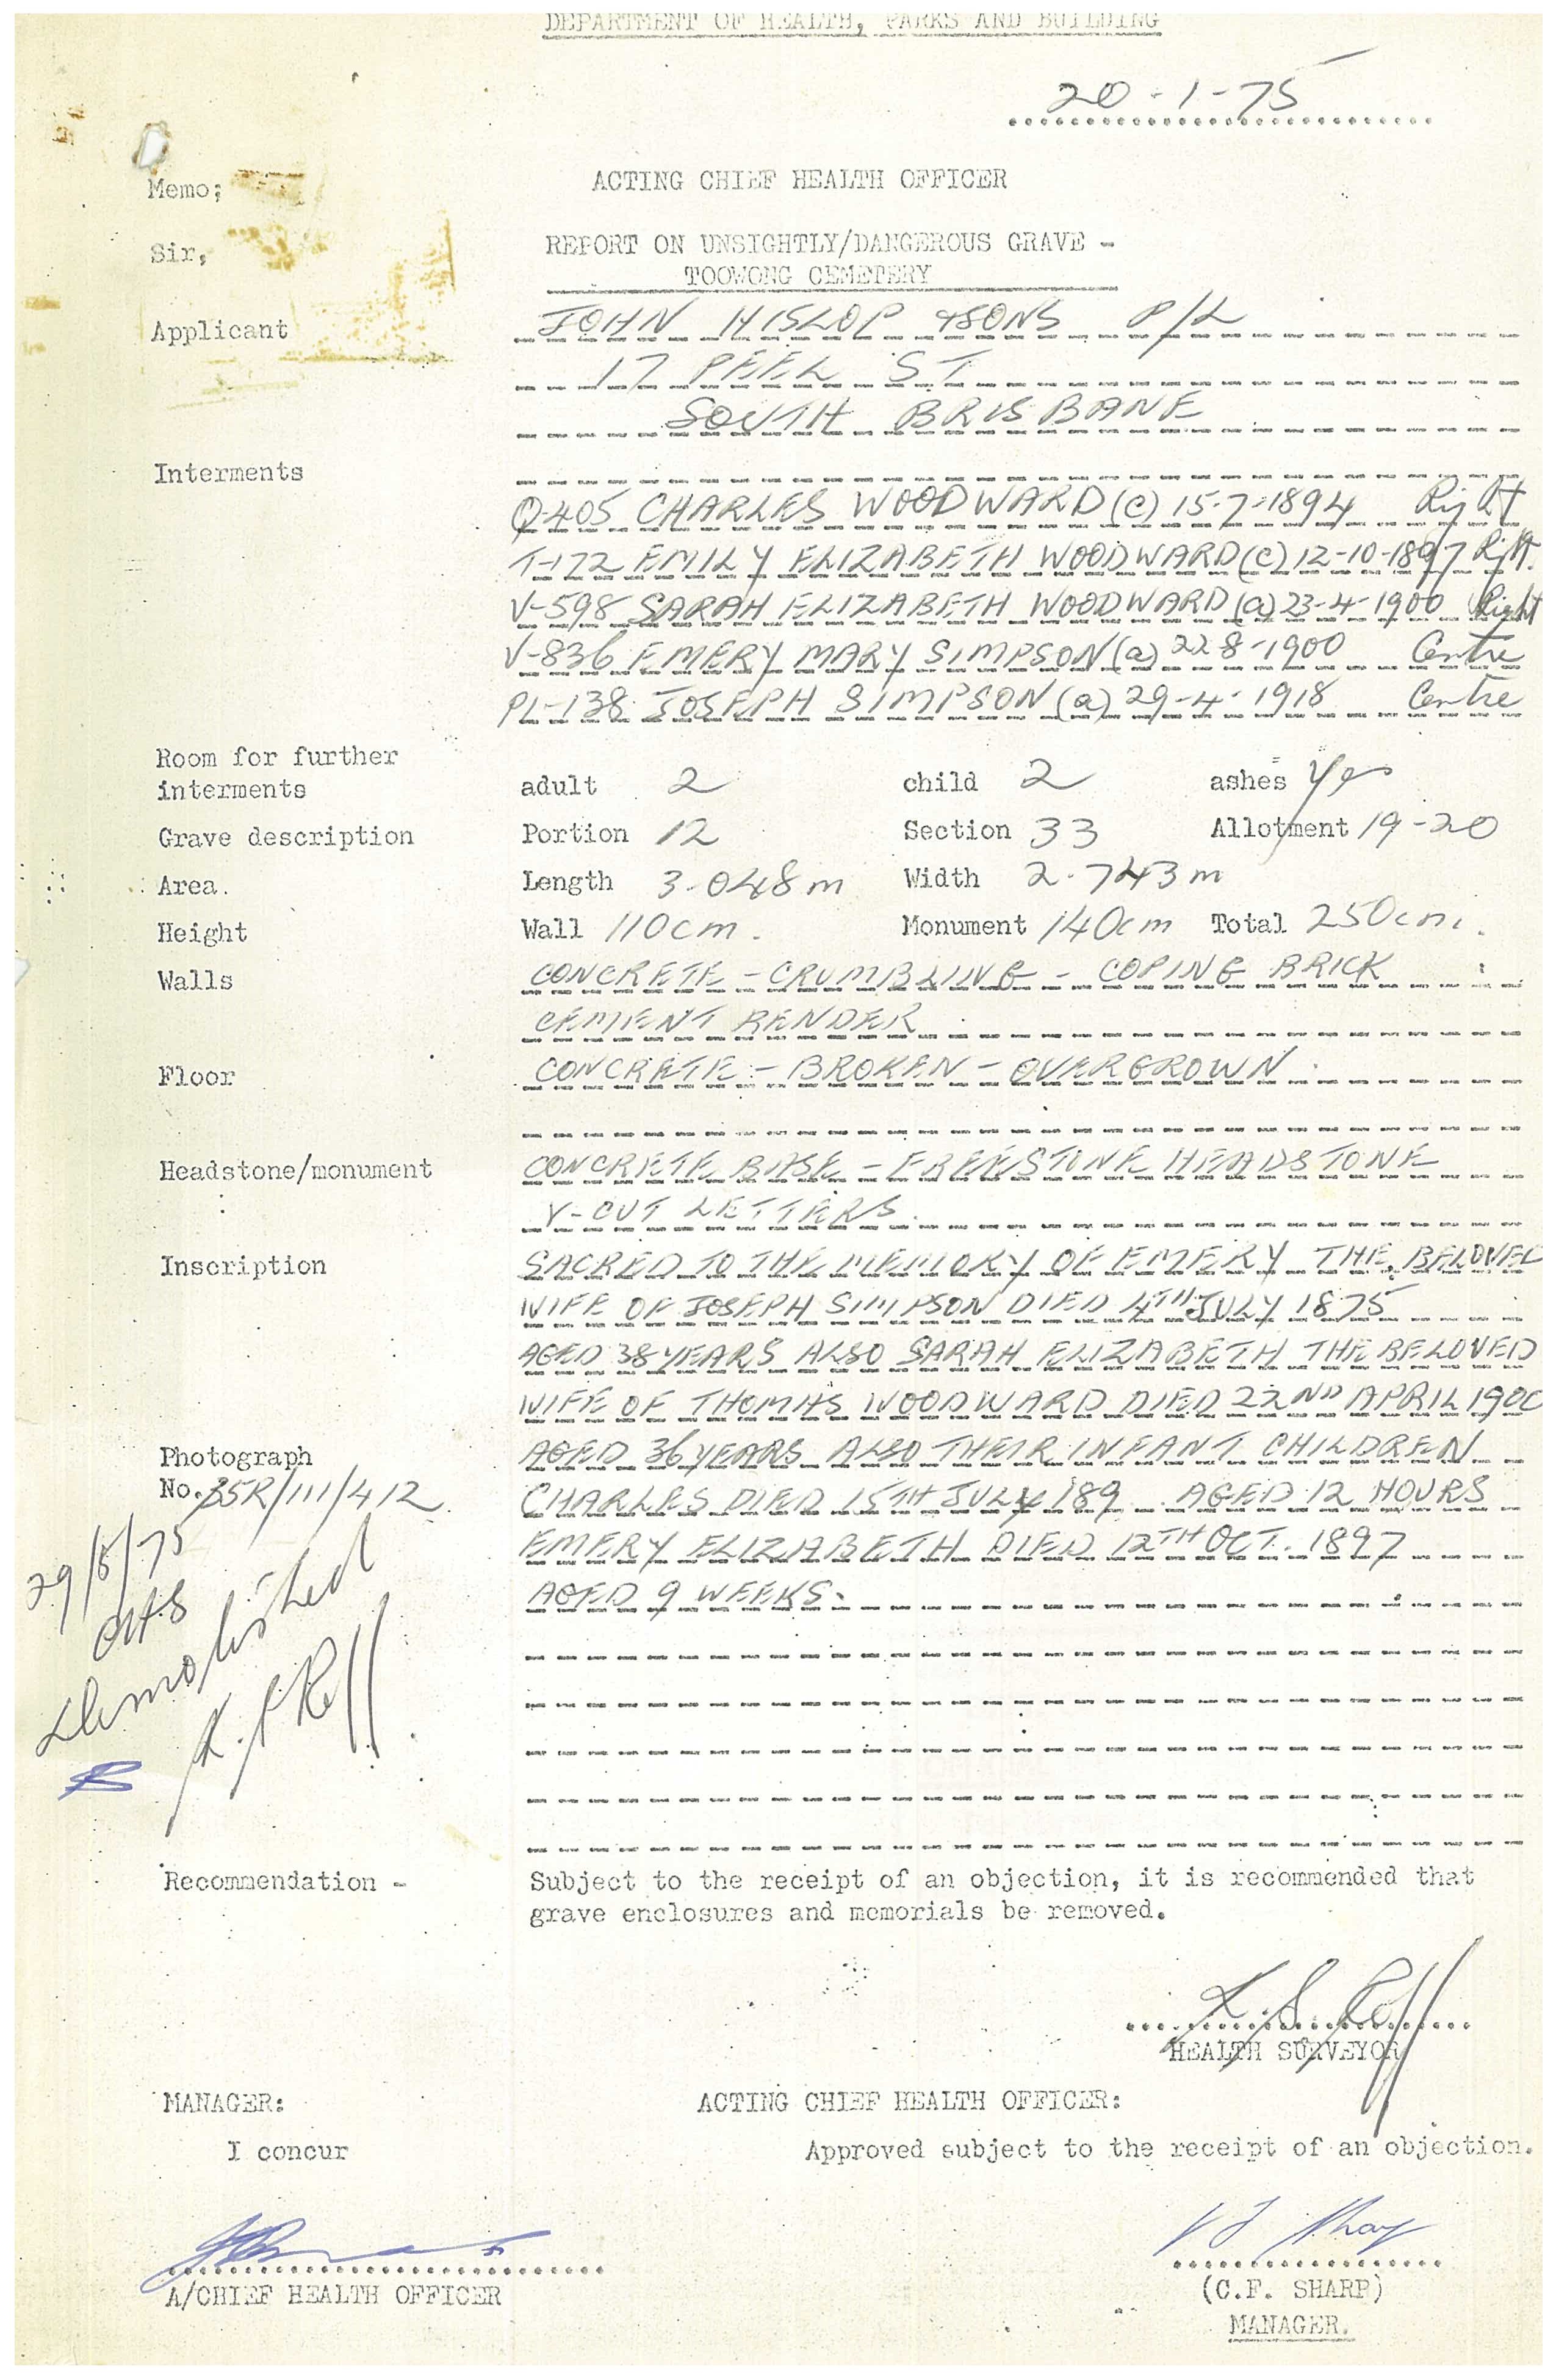 DEPARTMENT OF HEALTH, PARKS AND BUILDING
20-1-75
Memo; ACTING CHIEF HEALTH OFFICER
Sir, REPORT ON UNSIGHTLY/DANGEROUS GRAVE -
TOOWONG CEMETERY
Applicant JOHN HISLOP & SONS P/L
17 PEEL ST
SOUTH BRISBANE
Interments
Q-405 CHARLES WOODWARD (c) 15-7-1894 Right
T-172 EMILY ELIZABETH WOODWARD (c) 12-10-1897 Right
V-598 SARAH ELIZABETH WOODWARD (a) 23-4-1900 Right
V-836 EMERY MARY SIMPSON (a) 22-8-1900 Centre
P1-138 JOSEPH SIMPSON (a) 29-4-1918 Centre
Room for further
interments adult 2 child 2 ashes Yes
Grave description Portion 12 Section 33 Allotment 19-20
Area. Length 3.048m Width 2.743m
Height Wall 110cm. Monument 140cm Total 250cm.
Walls CONCRETE - CRUMBLING - COPING BRICK
CEMENT RENDER
Floor CONCRETE - BROKEN - OVERGROWN
Headstone/monument CONCRETE BASE - FREESTONE HEADSTONE
V-CUT LETTERS.
Inscription SACRED TO THE MEMORY OF EMERY THE BELOVED
WIFE OF JOSEPH SIMPSON DIED 4TH JULY 1875
AGED 38 YEARS ALSO SARAH ELIZABETH THE BELOVED
WIFE OF THOMAS WOODWARD DIED 22ND APRIL 1900
Photograph AGED 36 YEARS ALSO THEIR INFANT CHILDREN
No. 35R/111/412 CHARLES DIED 15TH JULY 189 AGED 12 HOURS
EMERY ELIZABETH DIED 12TH OCT. 1897
AGED 9 WEEKS.
29/8/75
Demolished
Recommendation - Subject to the receipt of an objection, it is recommended that
grave enclosures and memorials be removed.
HEALTH SURVEYOR
MANAGER: ACTING CHIEF HEALTH OFFICER:
I concur Approved subject to the receipt of an objection.
A/CHIEF HEALTH OFFICER (C.F. SHARP)
MANAGER.